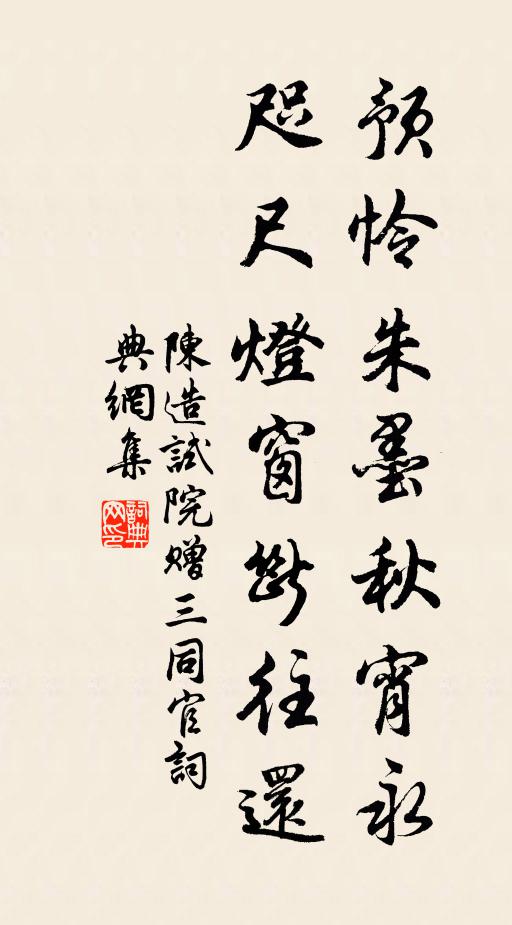 預怜朱墨秋宵永
咫尺燈窗斷往還
陳造試院贈三同官詞
典網集
詞典
网印